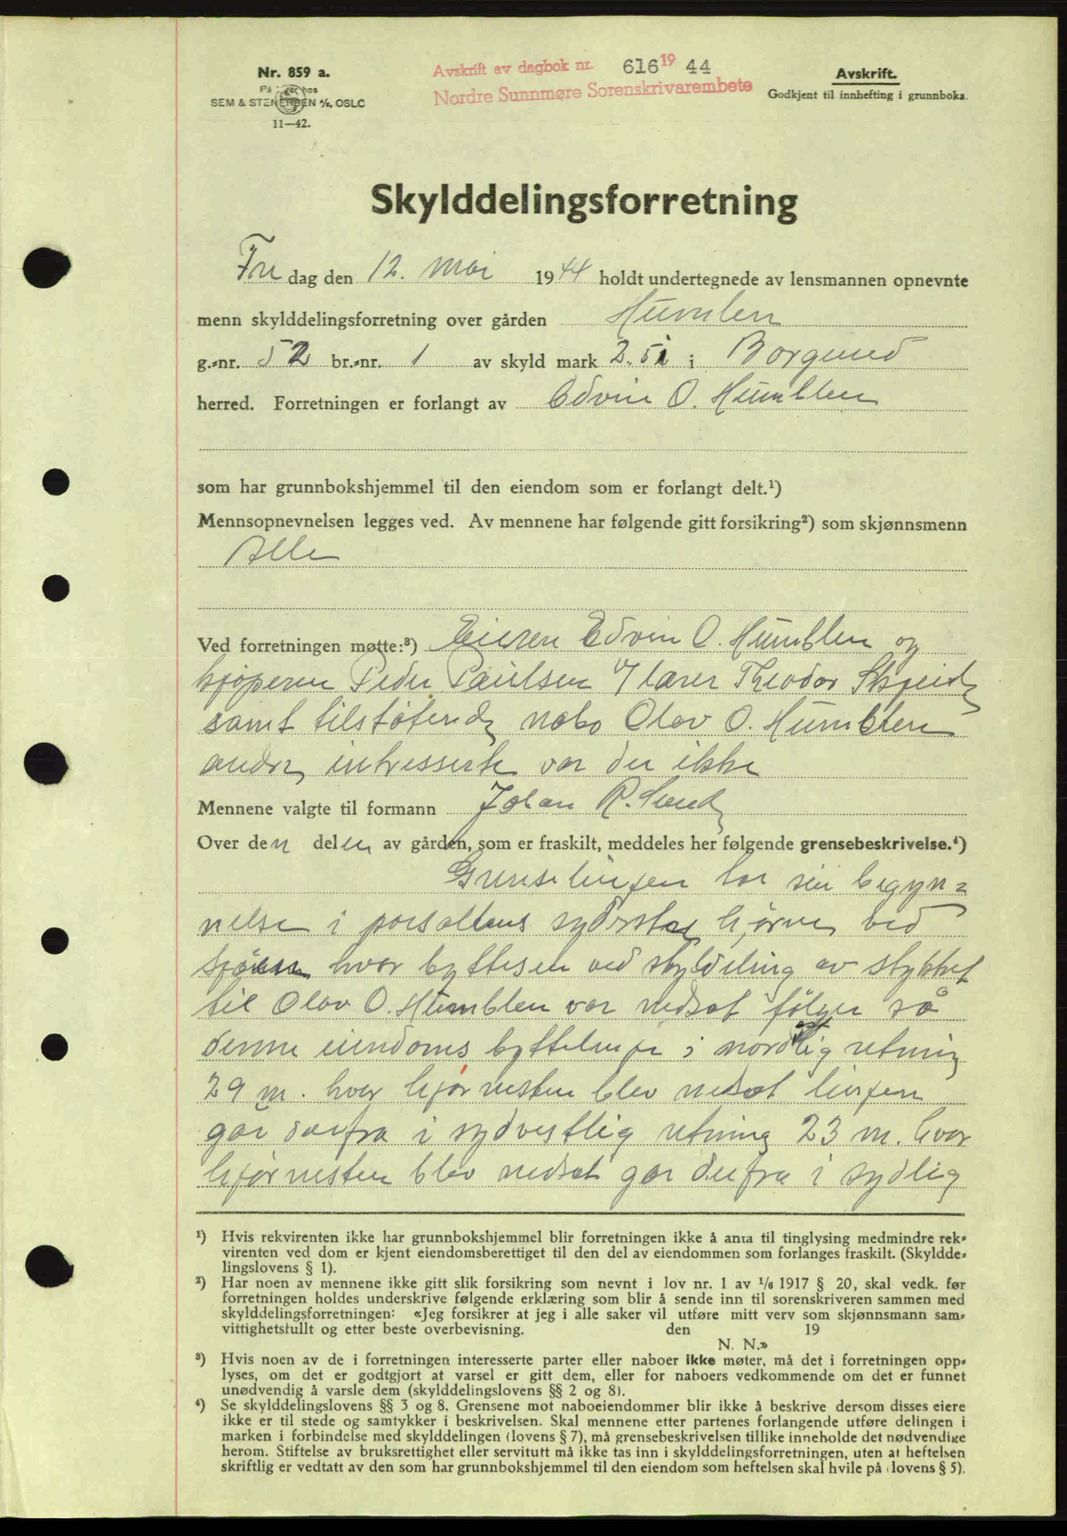 Nr. 859 a.
På lager hos
SEM & STENERSEN A/S, OSLO
11—42.
Avskrift av dagbok nr. 616 19 44
Nordre Sunnmøre Sorenskrivarembete
Avskrift.
Godkjent til innhefting i grunnboka.
Skylddelingsforretning
Fre dag den 12. mai 1944 holdt undertegnede av lensmannen opnevnte
menn skylddelingsforretning over gården Humlen
g.-nr. 52 br.-nr. 1 av skyld mark 2.51 i Borgund
herred. Forretningen er forlangt av Edvin O. Humblen
som har grunnbokshjemmel til den eiendom som er forlangt delt.¹)
Mennsopnevnelsen legges ved. Av mennene har følgende gitt forsikring²) som skjønnsmenn
Alle
Ved forretningen møtte:³) Eieren Edvin O. Humblen og
kjøperen Peder Paulsen Theodor
samt tilstøtende nabo Olav O. Humblen
andre intresserte var der ikke
Mennene valgte til formann Johan R.
Over den delen av gården, som er fraskilt, meddeles her følgende grensebeskrivelse.⁴)
Grenselinjen har sin begyn=
nelse i parsellens syderste hjørne ved
sjøen hvor byttesen ved skyldeling av stykket
til Olav O. Humblen var nedsat følger så
denne eiendoms byttelinje i nordlig retning
29 m. hvor hjørnesten blev nedsat linjen
går derfra i sydvestlig retning 23 m. hvor
hjørnesten blev nedsat går derfra i sydlig
¹) Hvis rekvirenten ikke har grunnbokshjemmel blir forretningen ikke å anta til tinglysing medmindre rek-
virenten ved dom er kjent eiendomsberettiget til den del av eiendommen som forlanges fraskilt. (Skyldde-
lingslovens § 1).
²) Har noen av mennene ikke gitt slik forsikring som nevnt i lov nr. 1 av 1/6 1917 § 20, skal vedk. før
forretningen holdes underskrive følgende erklæring som blir å sende inn til sorenskriveren sammen med
skylddelingsforretningen: «Jeg forsikrer at jeg i alle saker vil utføre mitt verv som skjønnsmann sam-
vittighetsfullt og etter beste overbevisning. den 19
N. N.»
³) Hvis noen av de i forretningen interesserte parter eller naboer ikke møter, må det i forretningen opp-
lyses, om det er godtgjort at varsel er gitt dem, eller for naboers vedkommende om det er funnet
unødvendig å varsle dem (skylddelingslovens §§ 2 og 8).
⁴) Se skylddelingslovens §§ 3 og 8. Grensene mot naboeiendommer blir ikke å beskrive dersom disses eiere
ikke er til stede og samtykker i beskrivelsen. Skal mennene etter partenes forlangende utføre delingen i
marken i forbindelse med skylddelingen (lovens § 7), må grensebeskrivelsen tillike inneholde det nødvendige
herom. Stiftelse av bruksrettighet eller servitutt må ikke tas inn i skylddelingsforretningen, uten at heftelsen
skriftlig er vedtatt av den som har grunnbokshjemmel til den eiendom som heftelsen skal hvile på (lovens § 5).